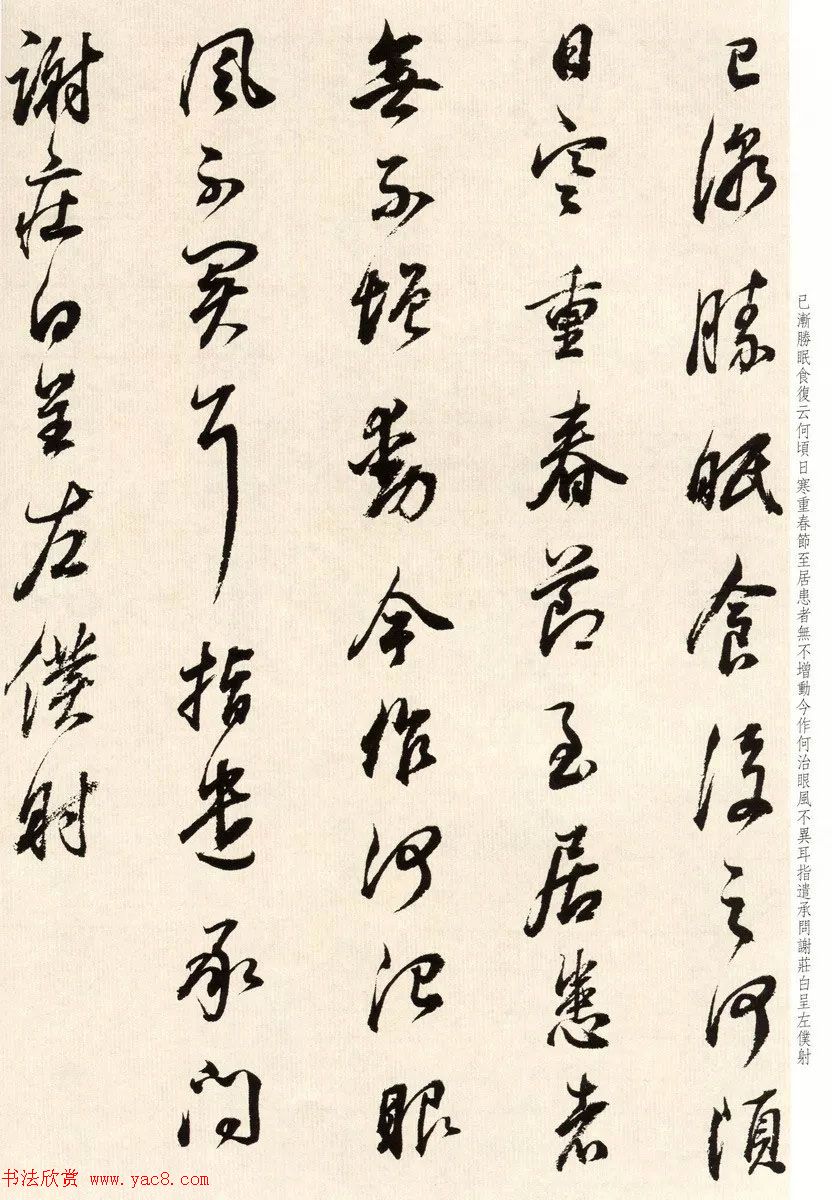 已漸勝眠食復云何頃
日寒重春節至居患者
無不增動今作何治眼
風不異耳指遣承問
謝莊白呈左僕射
已漸勝眠食復云何頃日寒重春節至居患者無不增動今作何治眼風不異耳指遣承問謝莊白呈左僕射
书法欣赏 www.yac8.com